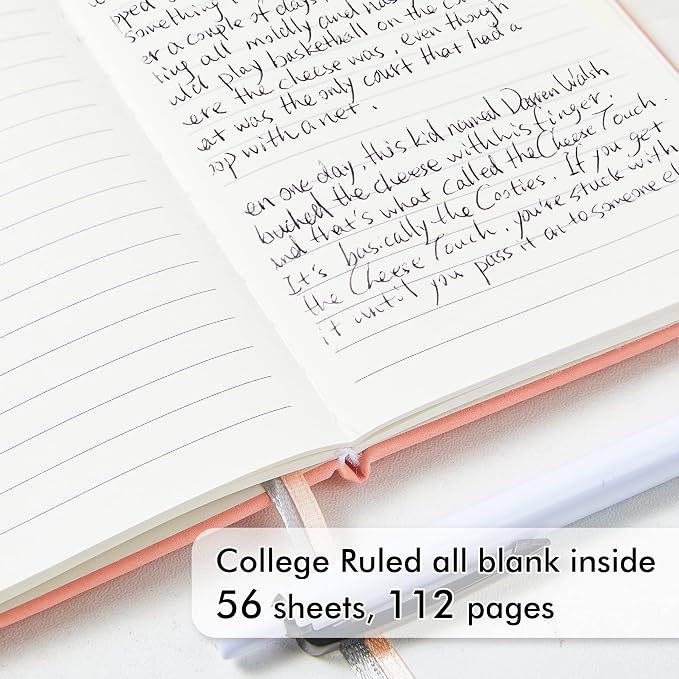 something
er a couple of days,
ing all moldly and nas
uld play basketball on the co
ere the cheese was, even though
at was the only court that had a
oop with a net.
en one day, this kid named Darren Walsh
buched the cheese with his finger.
and that's what called the Cheese Touch.
It's basically the Cooties. If you get
the Cheese Touch, you're stuck with
it until you pass it on to someone el
College Ruled all blank inside
56 sheets, 112 pages